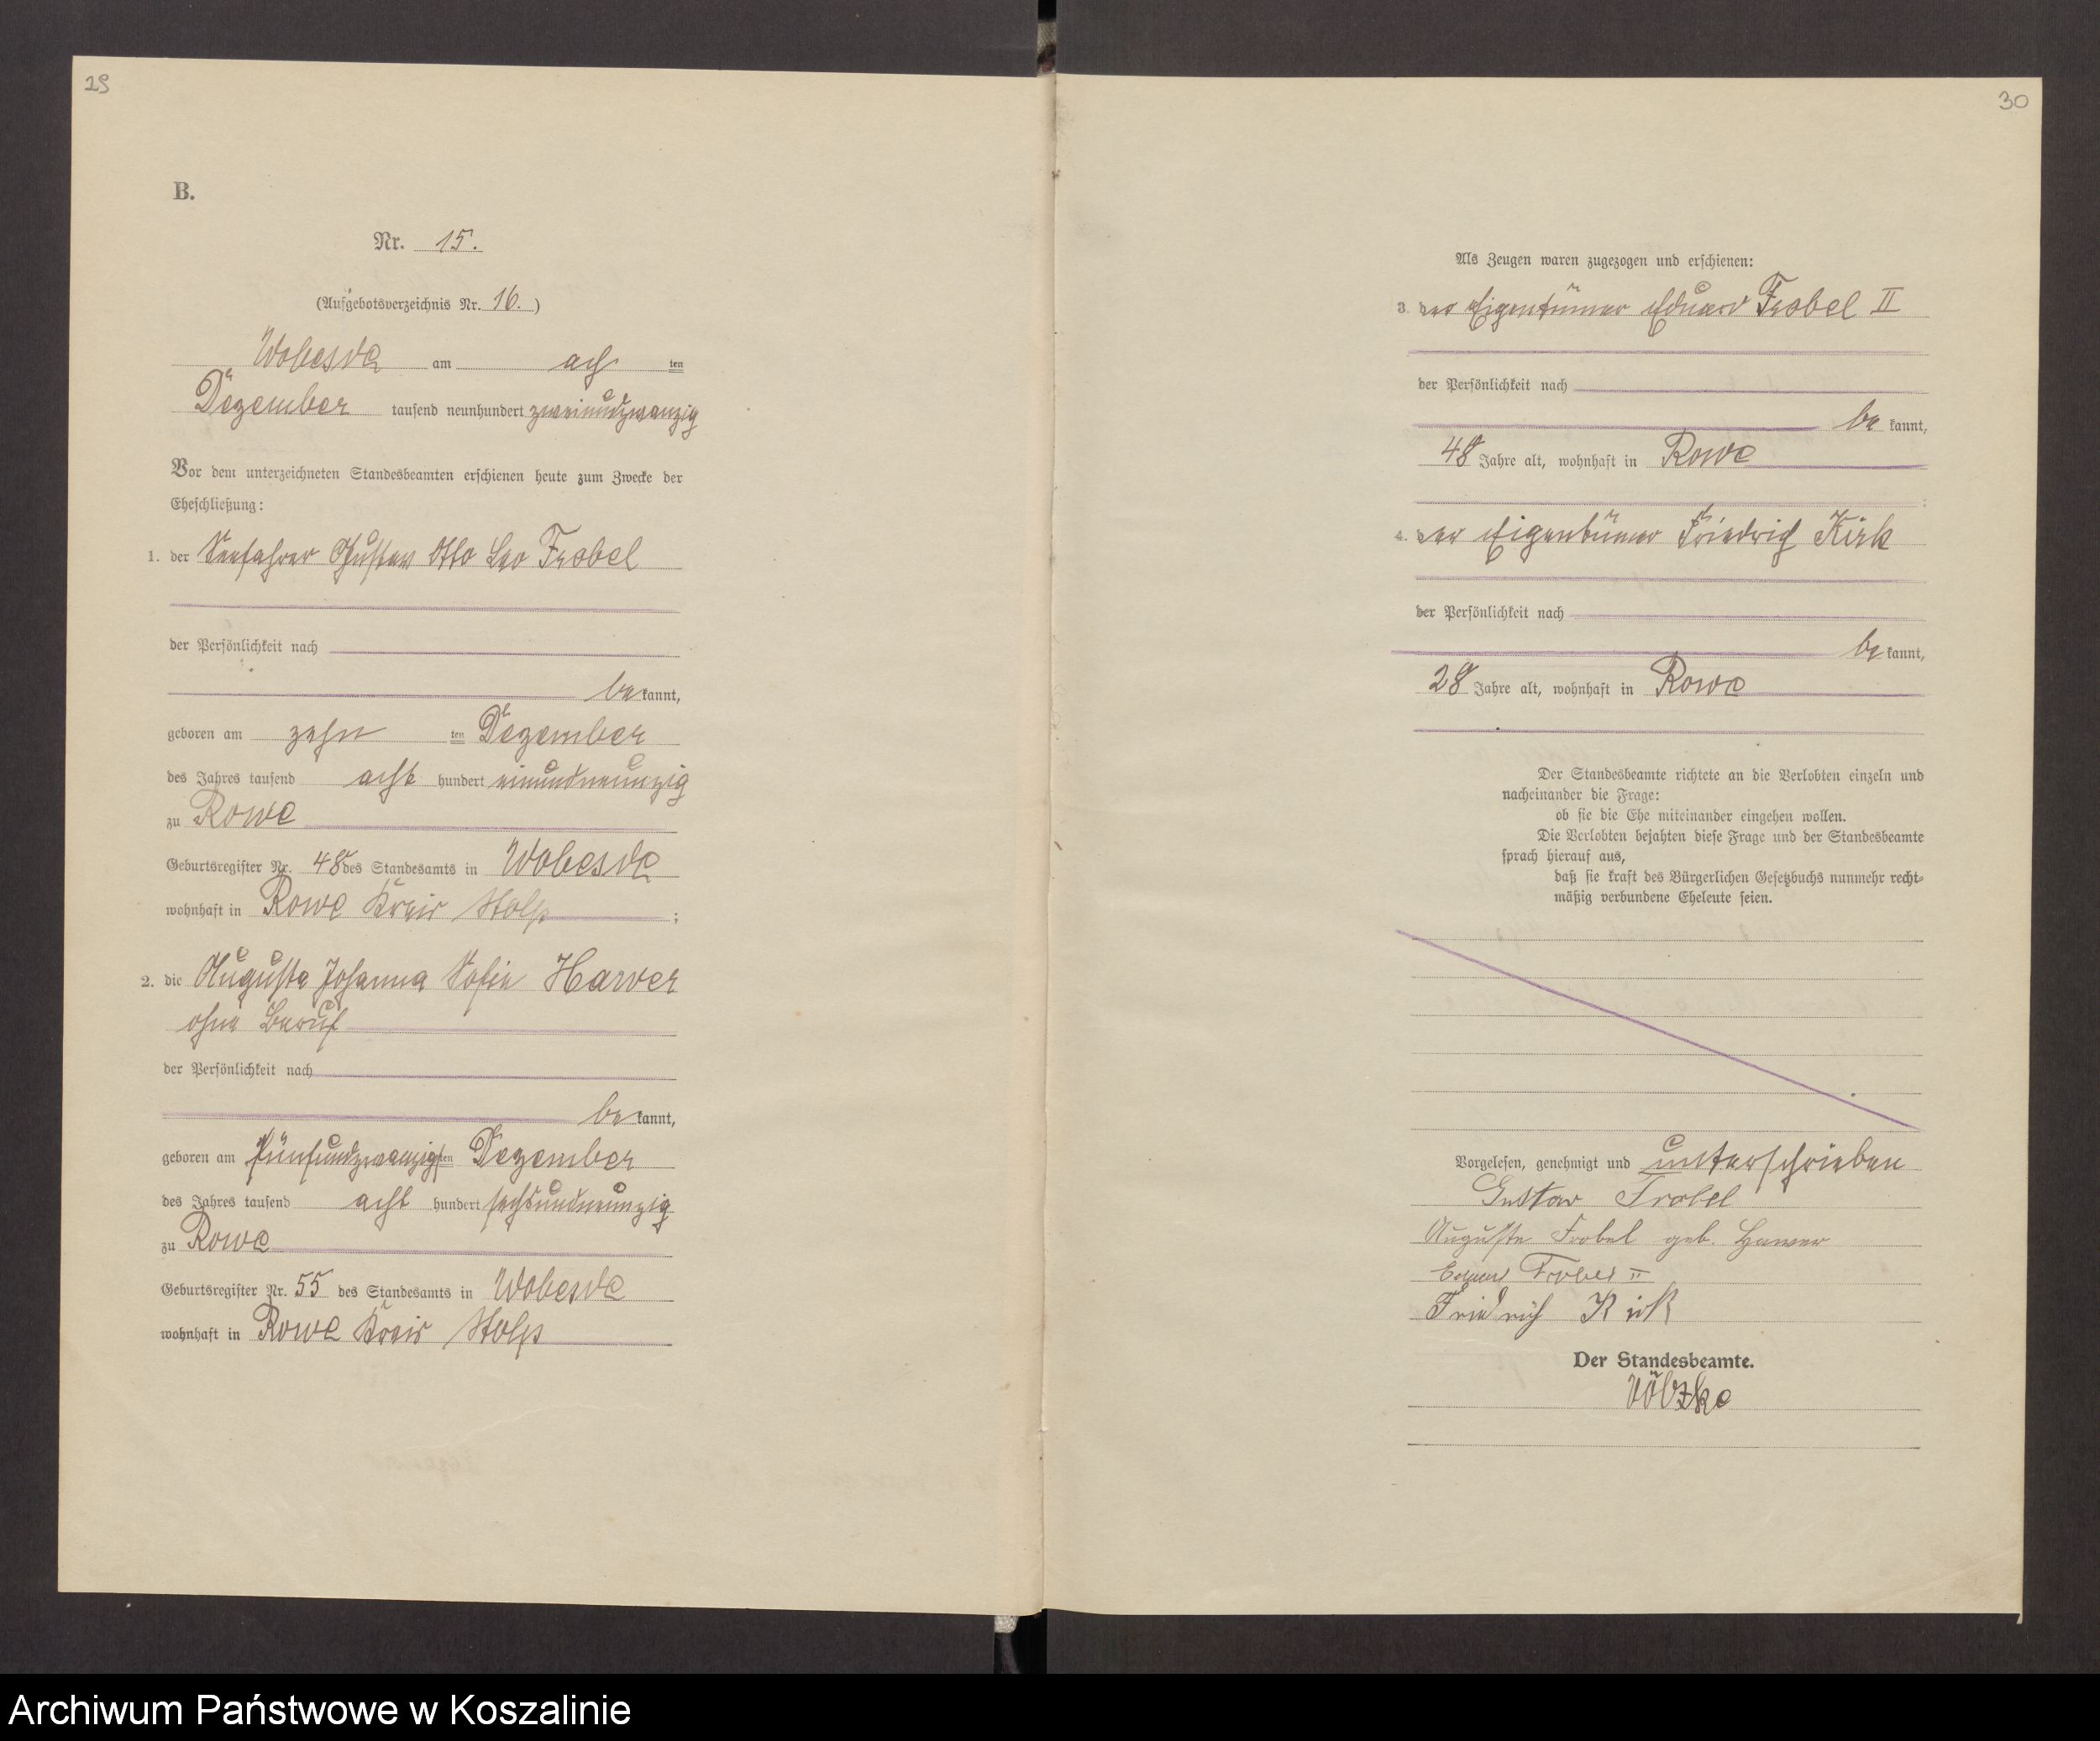 29
30
B.
Nr. 15.
(Aufgebotsverzeichnis Nr. 16.)
Wobesde am ach ten
Dezember tausend neunhundert zweiundzwanzig
Vor dem unterzeichneten Standesbeamten erschienen heute zum Zwecke der
Eheschließung:
1. der Seefahrer Gustav Otto Leo Frobel
der Persönlichkeit nach
be kannt,
geboren am zehn ten Dezember
des Jahres tausend acht hundert einundneunzig
zu Rowe
Geburtsregister Nr. 48 des Standesamts in Wobesde
wohnhaft in Rowe Kreis Stolp ;
2. die Auguste Johanna Sofie Harver
ohne Beruf
der Persönlichkeit nach
be kannt,
geboren am fünfundzwanzigsten Dezember
des Jahres tausend acht hundert sechsundneunzig
zu Rowe
Geburtsregister Nr. 55 des Standesamts in Wobesde
wohnhaft in Rowe Kreis Stolp
Als Zeugen waren zugezogen und erschienen:
3. der Eigentümer Eduard Frobel II
der Persönlichkeit nach
be kannt,
48 Jahre alt, wohnhaft in Rowe
;
4. der Eigentümer Friedrich Kirk
der Persönlichkeit nach
be kannt,
28 Jahre alt, wohnhaft in Rowe
Der Standesbeamte richtete an die Verlobten einzeln und
nacheinander die Frage:
ob sie die Ehe miteinander eingehen wollen.
Die Verlobten bejahten diese Frage und der Standesbeamte
sprach hierauf aus,
daß sie kraft des Bürgerlichen Gesetzbuchs nunmehr recht-
mäßig verbundene Eheleute seien.
Vorgelesen, genehmigt und unterschrieben
Gustav Frobel
Auguste Frobel geb. Harver
Eduard Frobel II
Friedrich Kirk
Der Standesbeamte.
Völzke
Archiwum Państwowe w Koszalinie